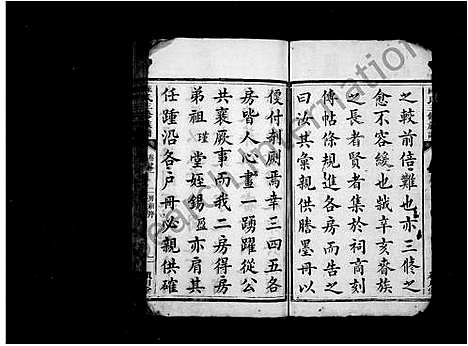 之較前倍難也亦三修之
愈不容緩也歲辛亥春族
之長者賢者集於祠商刻
傳帖條規進各房而告之
曰汝其彙親供謄墨冊以
便付剞劂焉幸三四五各
房皆人心畫一踴躍從公
共襄厥事而我二房得房
弟祖瑾堂姪錫盈亦肩其
任踵沿各戶毋必親供確